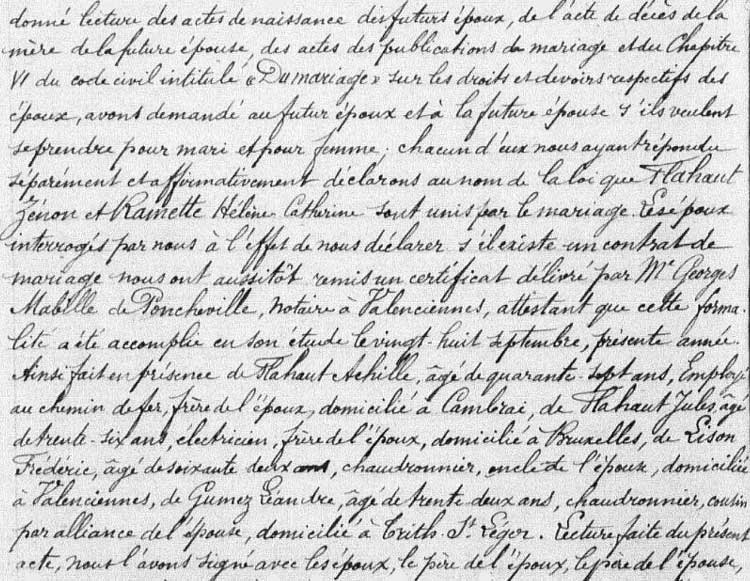 donné lecture des actes de naissance des futurs époux, de l'acte de décès de la
mère de la future épouse, des actes des publications de mariage et du Chapitre
VI du code civil intitulé « Du mariage » sur les droits et devoirs respectifs des
époux, avons demandé au futur époux et à la future épouse s'ils veulent
se prendre pour mari et pour femme; chacun d'eux nous ayant répondu
séparément et affirmativement déclarons au nom de la loi que Flahaut
Zénon et Ramette Hélène Catherine sont unis par le mariage. Les époux
interrogés par nous à l'effet de nous déclarer s'il existe un contrat de
mariage nous ont aussitôt remis un certificat délivré par Me Georges
Mabille de Poncheville, notaire à Valenciennes, attestant que cette forma-
lité a été accomplie en son étude le vingt-huit septembre, présente année.
Ainsi fait en présence de Flahaut Achille, âgé de quarante-sept ans, Employé
au chemin de fer, frère de l'époux, domicilié à Cambrai, de Flahaut Jules, âgé
de trente-six ans, électricien, frère de l'époux, domicilié à Bruxelles, de Lison
Frédéric, âgé de soixante deux ans, chaudronnier, oncle de l'épouse, domiciliée
à Valenciennes, de Gumez Léandre, âgé de trente-deux ans, chaudronnier, cousin
par alliance de l'épouse, domicilié à Trith-St Léger. Lecture faite du présent
acte, nous l'avons signé avec les époux, le père de l'époux, le père de l'épouse,